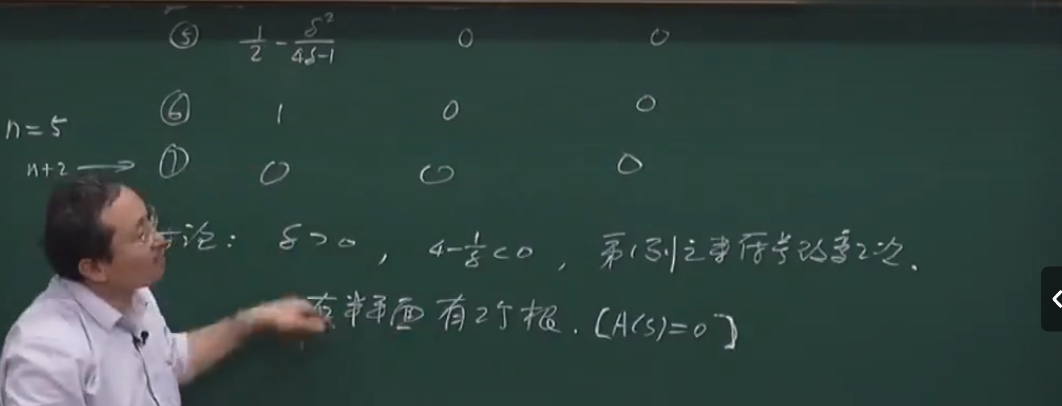 ⑤ 1/2 - δ²/(4δ-1) 0 0
⑥ 1 0 0
n=5
n+2 → ⑦ 0 0 0
论: δ>0, 4-1/δ<0, 第1列之末符号改变2次.
右半平面有2个根. [A(s)=0]